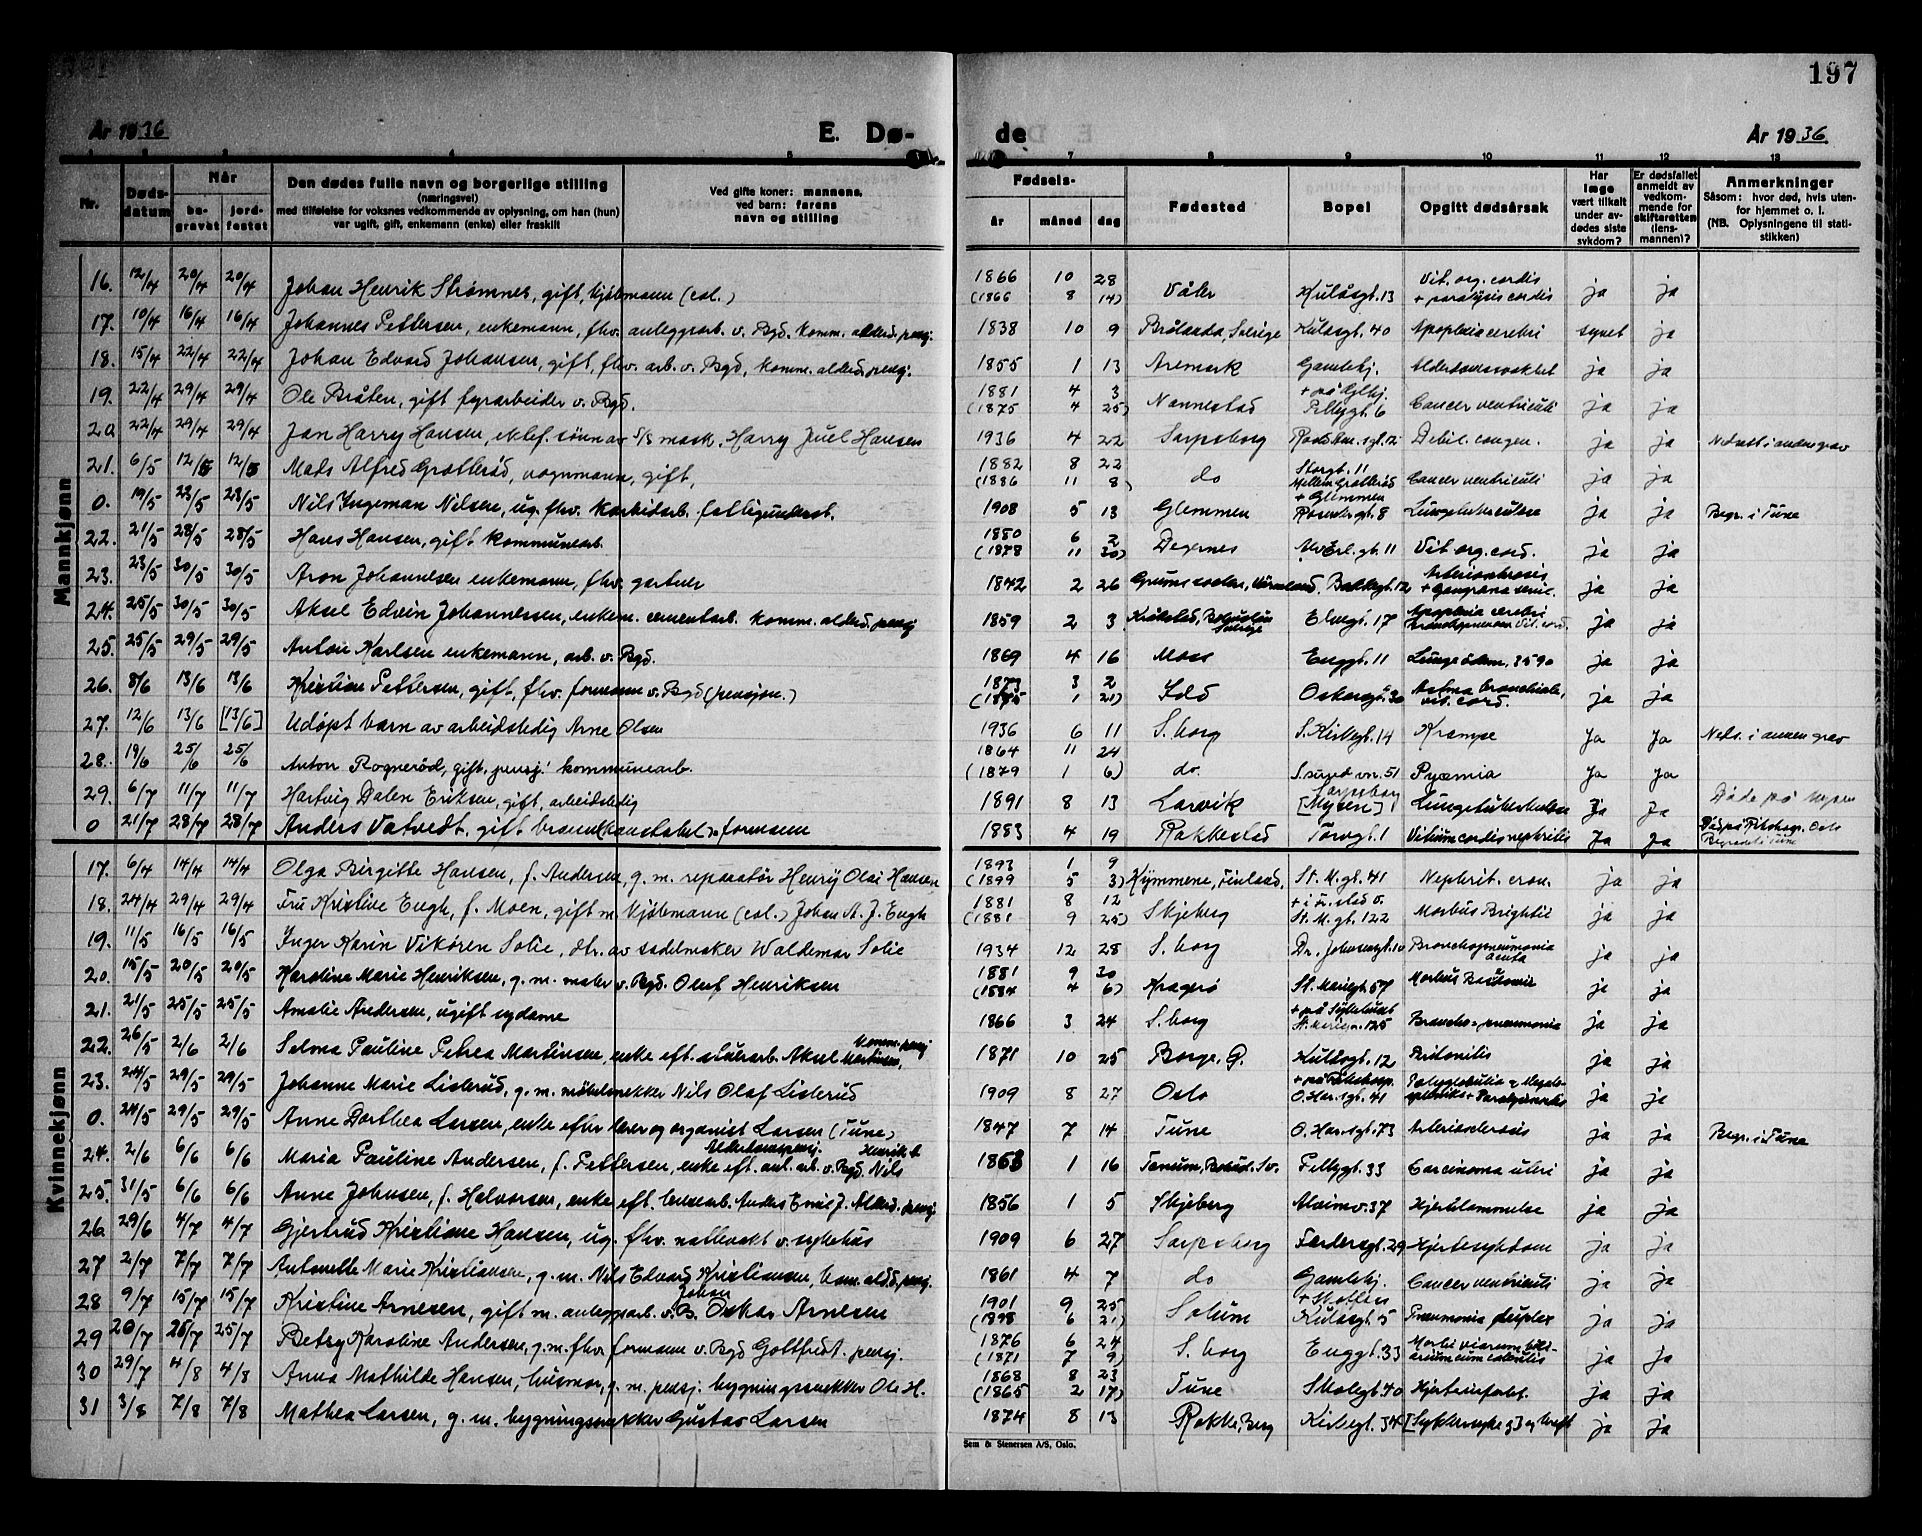 197
År 1936
E. Dø-
de
År 1936.
4 5 7 8 9 10 11 12 13
Nr.
Døds-
datum
Når
be-
gravet
jord-
festet
Den dødes fulle navn og borgerlige stilling
(næringsvei)
med tilføielse for voksnes vedkommende av oplysning, om han (hun)
var ugift, gift, enkemann (enke) eller fraskilt
Ved gifte koner: mannens.
ved barn: farens
navn og stilling
Fødsels-
år måned dag
Fødested
Bopel
Opgitt dødsårsak
Har
læge
vært tilkalt
under av-
dødes siste
sykdom?
Er dødsfallet
anmeldt av
vedkom-
mende for
skifteretten
(lens-
mannen)?
Anmerkninger
Såsom: hvor død, hvis uten-
for hjemmet o. l.
(NB. Oplysningene til stati-
stikken)
Mannkjønn
16. 12/4 20/4 20/4 Johan Henrik Strømnes, gift, kjøbmann (col.) 1866 10 28 (1866 8 14) Våler Kulåsgt. 13 Vit. org. cordis + paralysis cordis ja ja
17. 10/4 16/4 16/4 Johannes Pettersen, enkemann, fhv. anleggsarb. v. Bgd. komm. alderd. pensj. 1838 10 9 Brålanda, Sverige Kulåsgt. 40 Apoplexia cerebri synet ja
18. 15/4 22/4 22/4 Johan Edvard Johansen, gift, fhv. arb. v. Bgd, komm. alderd. pensj. 1855 1 13 Aremark Gamlehj. Alderdomssvakhet ja ja
19. 22/4 29/4 29/4 Ole Bråten, gift fyrarbeider v. Bgd. 1881 4 3 (1875 4 25) Nannestad + på Glhj. Pellygt 6 Cancer ventriculi ja ja
20 22/4 29/4 29/4 Jan Harry Hansen, ektef. sønn av mask. Harry Juel Hansen 1936 4 22 Sarpsborg Debil. congen. ja ja Nedsatt i anden grav
21. 6/5 12/5 12/5 Mads Alfred Grotterød, vognmann, gift, 1882 8 22 (1886 11 8) do Storgt. 11 Mellem Grotterød Cancer ventriculi ja ja
0. 19/5 23/5 23/5 Nils Ingeman Nilsen, ug. fhv. karbidarb. fattigunderst. 1908 5 13 Glemmen + Glemmen Rosenbergt. 8 Lungetuberkulose ja ja Begr. i Tune
22. 21/5 28/5 28/5 Hans Hansen, gift kommunearb. 1880 6 2 (1878 11 30) Degernes Vit. org. cord. ja ja
23. 23/5 30/5 30/5 Aron Johannesen enkemann, fhv. gartner 1842 2 26 Värmland Bakkegt. 12 + Gangræna senil. ja ja
24. 25/5 30/5 30/5 Aksel Edvin Johannessen, enkem. cementarb. komm. alderd. pensj 1859 2 3 Krokstad, Bohuslän Sverige Elvegt. 17 Apoplexia cerebri Bronchopneumoni Vit. cord. ja ja
25. 25/5 29/5 29/5 Anton Karlsen enkemann, arb. v. Bgd. 1869 4 16 Moss Enggt. 11 Lungeödem, ja ja
26. 8/6 13/6 13/6 Kristian Pettersen, gift, fhv. formann v. Bgd (pensjon.) 3 2 1 21) Idd Oskarsgt. 30 Astma bronchiale, vit. cord. ja ja
27. 12/6 13/6 [13/6] Udøpt barn av arbeidsledig Arne Olsen 1936 6 11 S. borg S. Kirkegt. 14 Krampe ja ja Neds. i annen grav
28. 19/6 25/6 25/6 Anton Rognerød, gift, pensj. kommunearb. 1864 11 24 (1879 1 6) do. 51 Pyæmia ja ja
29. 6/7 11/7 11/7 Hartvig Dalen Eriksen, gift, arbeidsledig 1891 8 13 Larvik Sarpsborg [Mysen] Lungetuberkulose ja ja Døde på Mysen
0 21/7 28/7 28/7 Anders Vatvedt, gift brannkonstabel v. formann 1883 4 19 Rakkestad Torvgt. 1 Vitium cordis nephritis ja ja Død på Rikshosp. Oslo Begravet i Tune
Kvinnekjønn
17. 6/4 14/4 14/4 Olga Birgitte Hansen, f. Andersen, g. m. reparatør Henry Olai Hansen 1893 1 9 (1899 5 3) Kymmene, Finland, St. M. gt. 41 Nephrit. cron. ja ja
18. 24/4 29/4 29/4 Fru Kristine Engh, f. Moen, gift m. kjøbmann (col.) Johan A. J. Engh 1881 8 12 (1881 9 25) Skjeberg St. M. gt. 122 Morbus Brightii ja ja
19. 11/5 16/5 16/5 Inger Karin Vikøren Solie, dtr. av sadelmaker Waldemar Solie 1934 12 28 S. borg Dr. Johnsensgt. 10 Bronchopneumonia acuta ja ja
20. 15/5 20/5 20/5 Karoline Marie Henriksen, g. m. maler v. Bgd. Oluf Henriksen 1881 9 30 (1884 4 6) Kragerø St. Mariegt. 57 Morbus Basedowii ja ja
21. 21/5 25/5 25/5 Amalie Andersen, ugift sydame 1866 3 24 S. borg + på Sykehuset St. Mariegt. 125 Broncho-pneumonia ja ja
22. 26/5 2/6 2/6 Selma Pauline Petrea Martinsen, enke eft. Aksel Martinsen, komm. pensj 1871 10 25 Borge. G. Kulåsgt. 12 Peritonitis ja ja
23. 24/5 29/5 29/5 Johanne Marie Listerud, g. m. møbelsnekker Nils Olaf Listerud 1909 8 27 Oslo + på Rikshosp. O. Har. sgt. 41 ja ja
0. 24/5 29/5 29/5 Anne Dorthea Larsen, enke efter lærer og organist Larsen (Tune) 1847 7 14 Tune O. Har. sgt. 73 Arteriosclerosis ja ja Begr. i Tune
24. 2/6 6/6 6/6 Maria Pauline Andersen, f. Pettersen, enke eft. anl. arb. v. Bgd. Nils Henrik A Alderdomspensj. 1 16 Tanum, Bohusl. Sv. Pellygt. 33 Carcinoma uteri ja ja
25. 31/5 6/6 6/6 Anne Johnsen, f. Halvorsen, enke eft. Anders Emil J. Alderd. pensj 1856 1 5 Skjeberg Alvimv. 37 Hjertelammelse ja ja
26. 29/6 4/7 4/7 Gjertrud Kristiane Hansen, ug. fhv. nattevakt v. sykehus 1909 6 27 Sarpsborg 29 Hjertesykdom ja ja
27 2/7 7/7 7/7 Antonette Marie Kristiansen, g. m. Nils Edvard Kristiansen, kom. aldd. pensj. 1861 4 7 do Gamlehj. Cancer ventriculi ja ja
28 9/7 15/7 15/7 Kristine Arnesen, gift m. anleggsarb. v. B. Johan Oskar Arnesen 1901 9 25 (1898 6 21) Solum Kulåsgt. 5 Pneumonia duplex ja ja
29 20/7 25/7 25/7 Betsy Karoline Andersen, g. m. fhv. formann v. Bgd Gottfred A. pensj. 1876 6 24 (1871 7 9) S. borg Enggt. 33 Morbi viarum biliarium cum calculis ja ja
30 29/7 4/8 4/8 Anna Mathilde Hansen, husmor, g. m. pensj. bygningssnekker Ole H. 1868 8 23 (1865 2 17) Tune Skolegt. 40 Hjerteinfarkt. ja ja
31 3/8 7/8 7/8 Mathea Larsen, g. m. bygningssnekker Gustav Larsen 1874 8 13 Rakke, Berg Kirkegt. 34 [Sukkersyke og] og kreft ja ja
Sem & Stenersen A/S, Oslo.